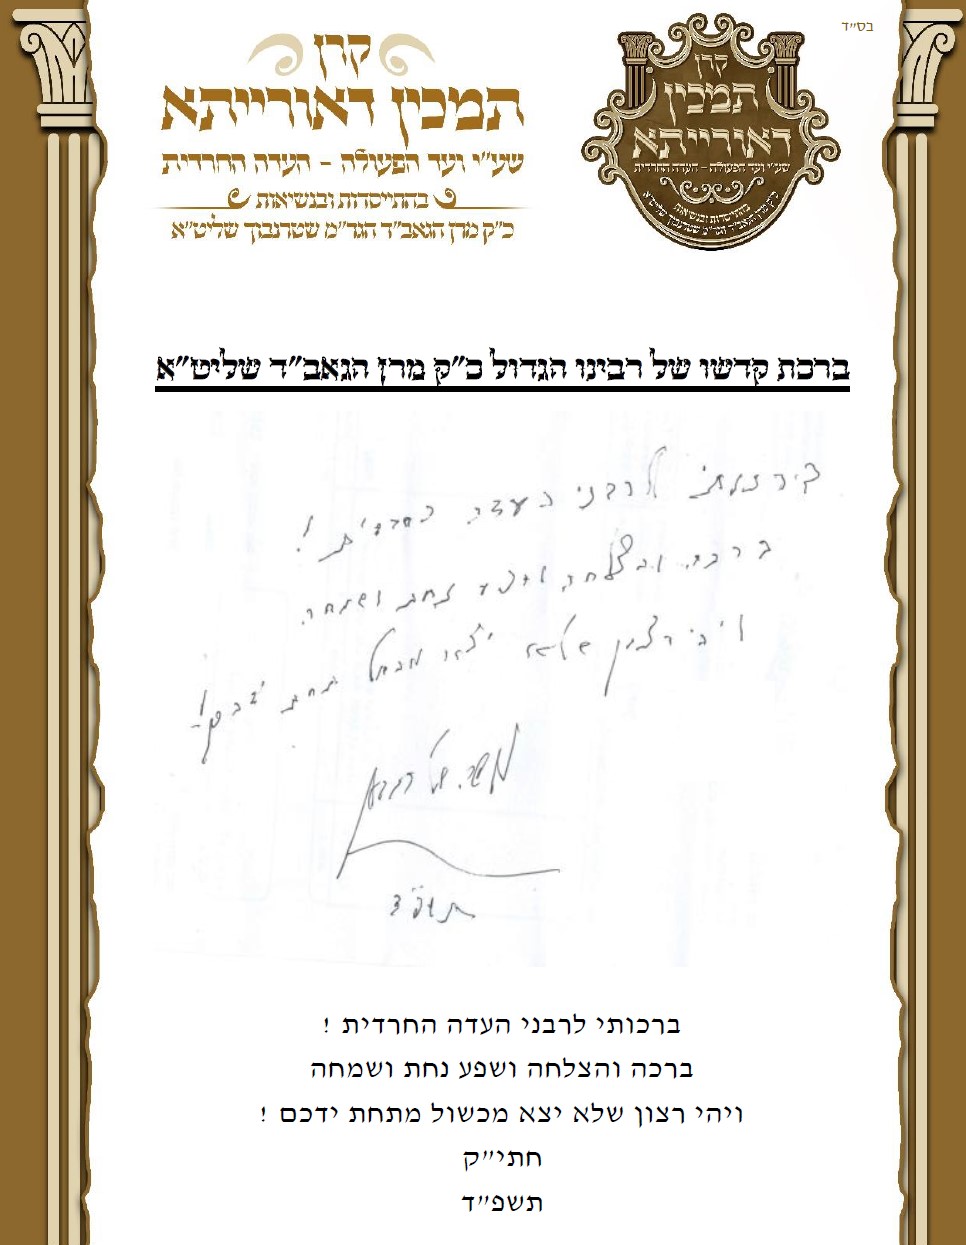 בס״ד
קרן
תמכין דאורייתא
שע״י ועד הפעולה - העדה החרדית
בהתייסדות ובנשיאות
כ״ק מרן הגאב״ד הגר״מ שטרנבוך שליט״א
קרן
תמכין
דאורייתא
שע״י ועד הפעולה - העדה החרדית
בהתייסדות ובנשיאות
כ״ק מרן הגאב״ד הגר״מ שטרנבוך שליט״א
ברכת קדשו של רבינו הגדול כ״ק מרן הגאב״ד שליט״א
ברכותי לרבני העדה החרדית !
ברכה והצלחה ושפע נחת ושמחה
ויהי רצון שלא יצא מכשול תחת ידכם !
תשפ״ד
ברכותי לרבני העדה החרדית !
ברכה והצלחה ושפע נחת ושמחה
ויהי רצון שלא יצא מכשול מתחת ידכם !
חתי״ק
תשפ״ד